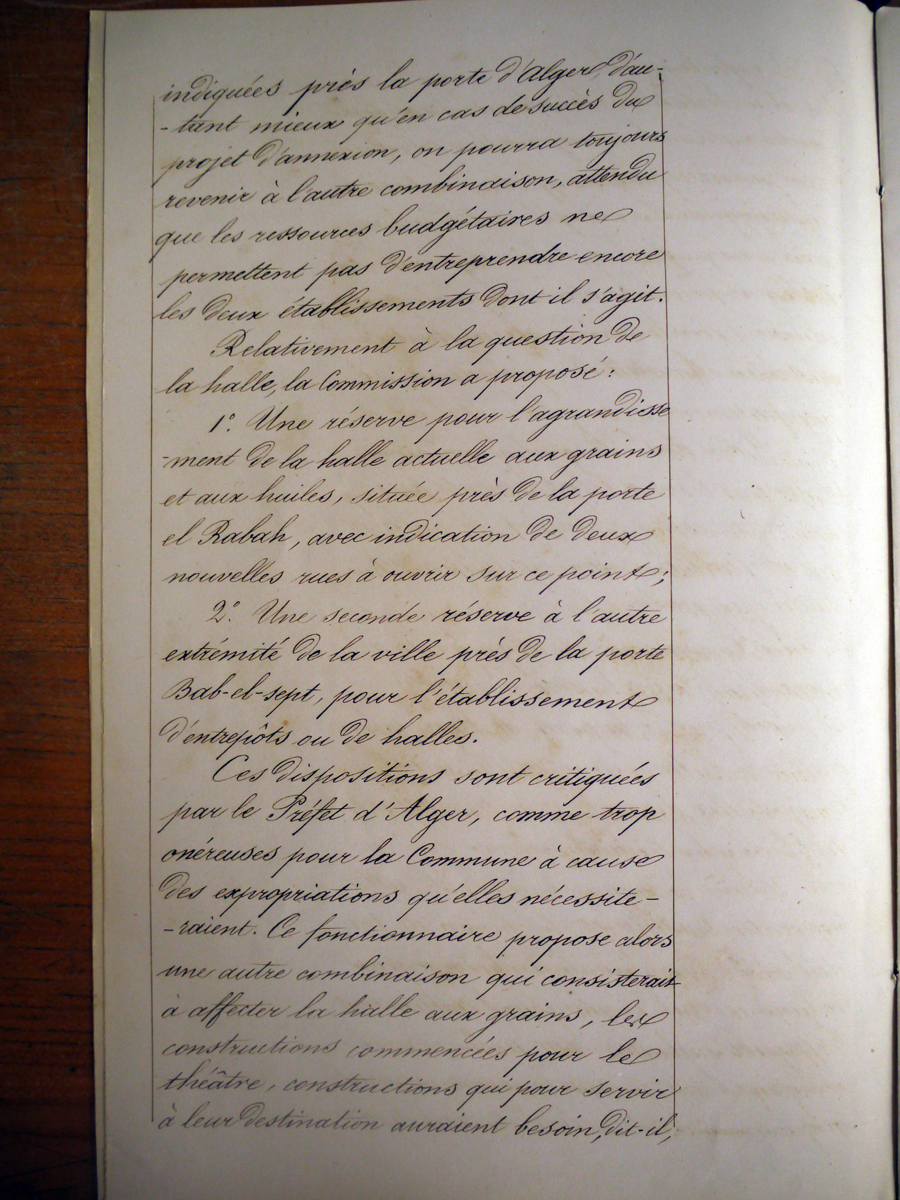 indiquées près la porte d'Alger, d'au-
-tant mieux qu'en cas de succès du
projet d'annexion, on pourra toujours
revenir à l'autre combinaison, attendu
que les ressources budgétaires ne
permettent pas d'entreprendre encore
les deux établissements dont il s'agit.
Relativement à la question de
la halle, la Commission a proposé :
1° Une réserve pour l'agrandisse
-ment de la halle actuelle aux grains
et aux huiles, située près de la porte
el Rabah, avec indication de deux
nouvelles rues à ouvrir sur ce point ;
2° Une seconde réserve à l'autre
extrémité de la ville près de la porte
Bab-el-sept, pour l'établissement
d'entrepôts ou de halles.
Ces dispositions sont critiquées
par le Préfet d'Alger, comme trop
onéreuses pour la Commune à cause
des expropriations qu'elles nécessite-
-raient. Ce fonctionnaire propose alors
une autre combinaison qui consisterait
à affecter la halle aux grains, les
constructions commencées pour le
théâtre, constructions qui pour servir
à leur destination auraient besoin, dit-il,